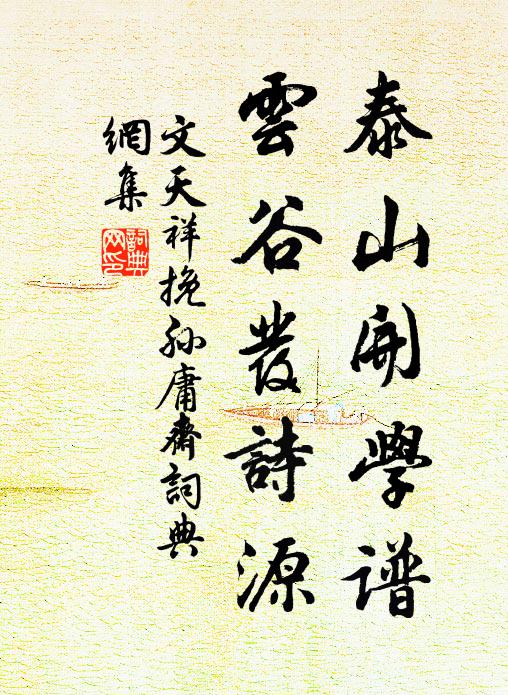 泰山開學譜
雲谷發詩源
文天祥挽孙庸齋詞典
網集
詞典
网印